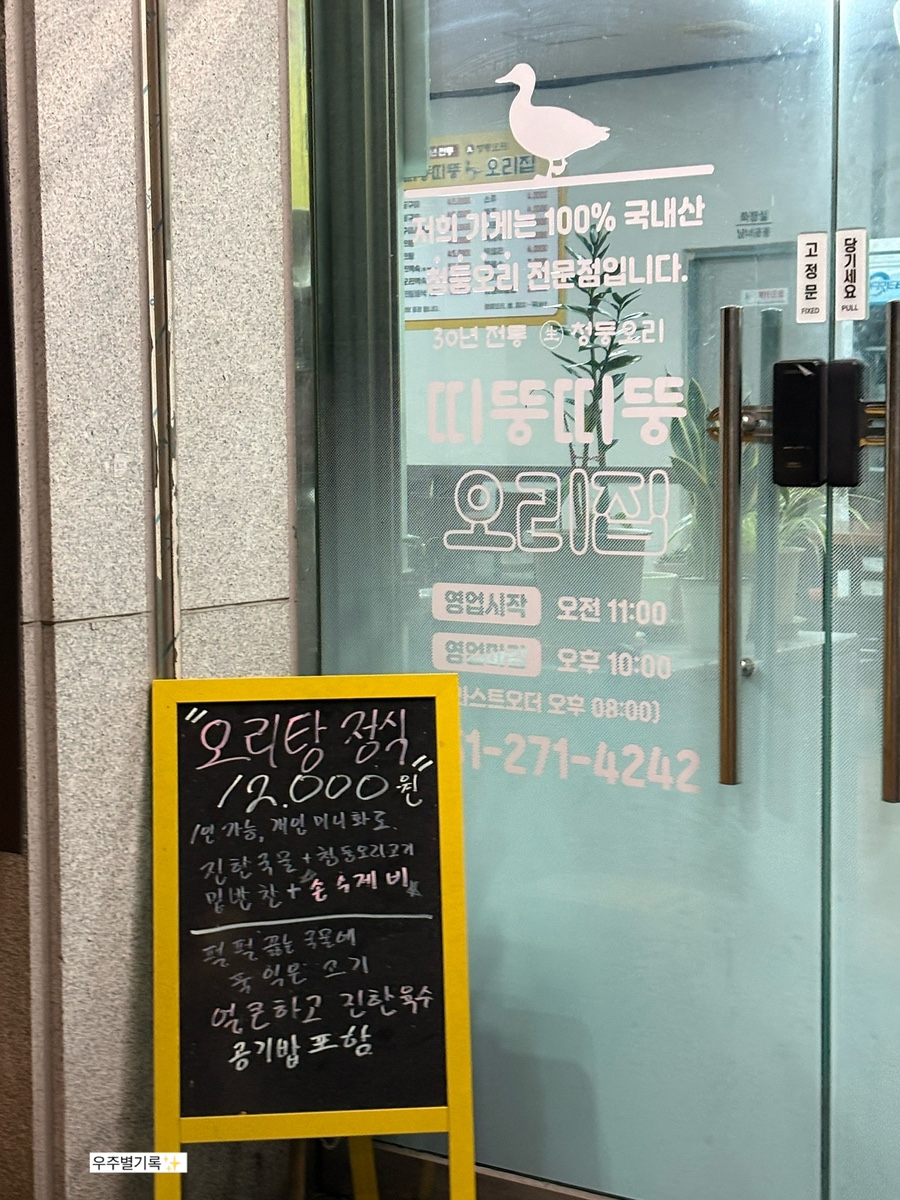 오리집
저희 가게는 100% 국내산
청둥오리 전문점입니다.
30년 전통 生 청둥오리
띠뚱띠뚱
오리집
영업시작 오전 11:00
영업마감 오후 10:00
라스트오더 오후 08:00)
1-271-4242
화장실
남녀공용
고정문
FIXED
당기세요
PULL
"오리탕 정식"
12.000원
1인 가능, 개인 미니화로.
진한국물+청둥오리고기
밑반찬+손수제비
펄펄 끓는 국물에
푹 익은 고기
얼큰하고 진한육수
공기밥 포함
우주별기록✨